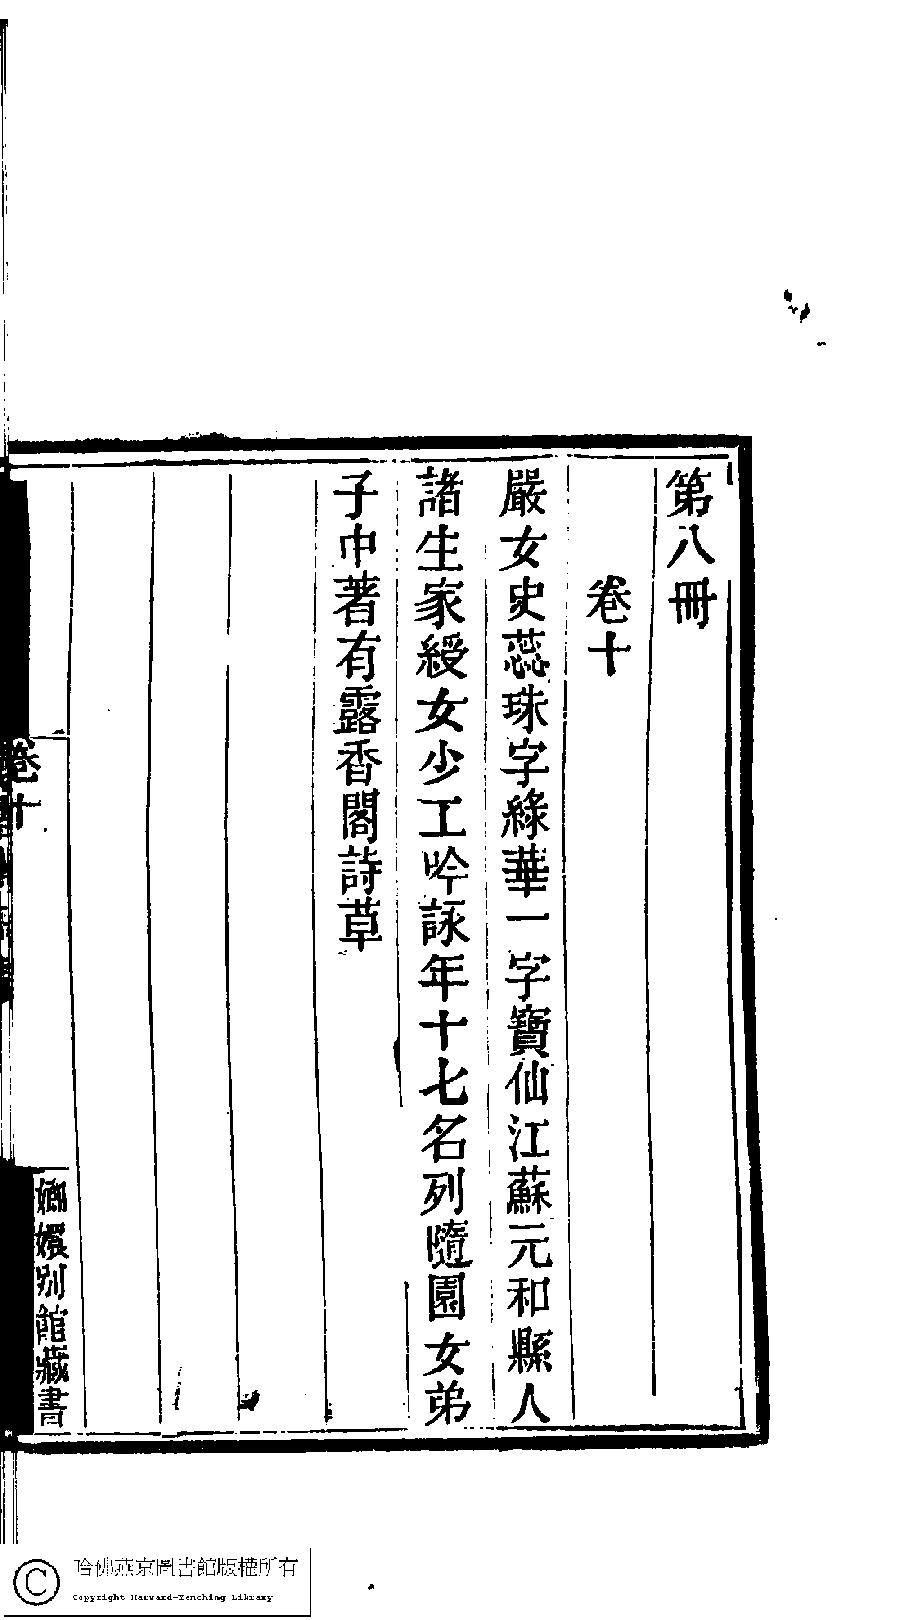 第八冊
卷十
嚴女史蕊珠字綠華一字寶仙江蘇元和縣人
諸生家綬女少工吟詠年十七名列隨園女弟
子中著有露香閣詩草
卷十
嫏嬛別館藏書
哈佛燕京圖書館版權所有
Copyright Harvard-Yenching Library